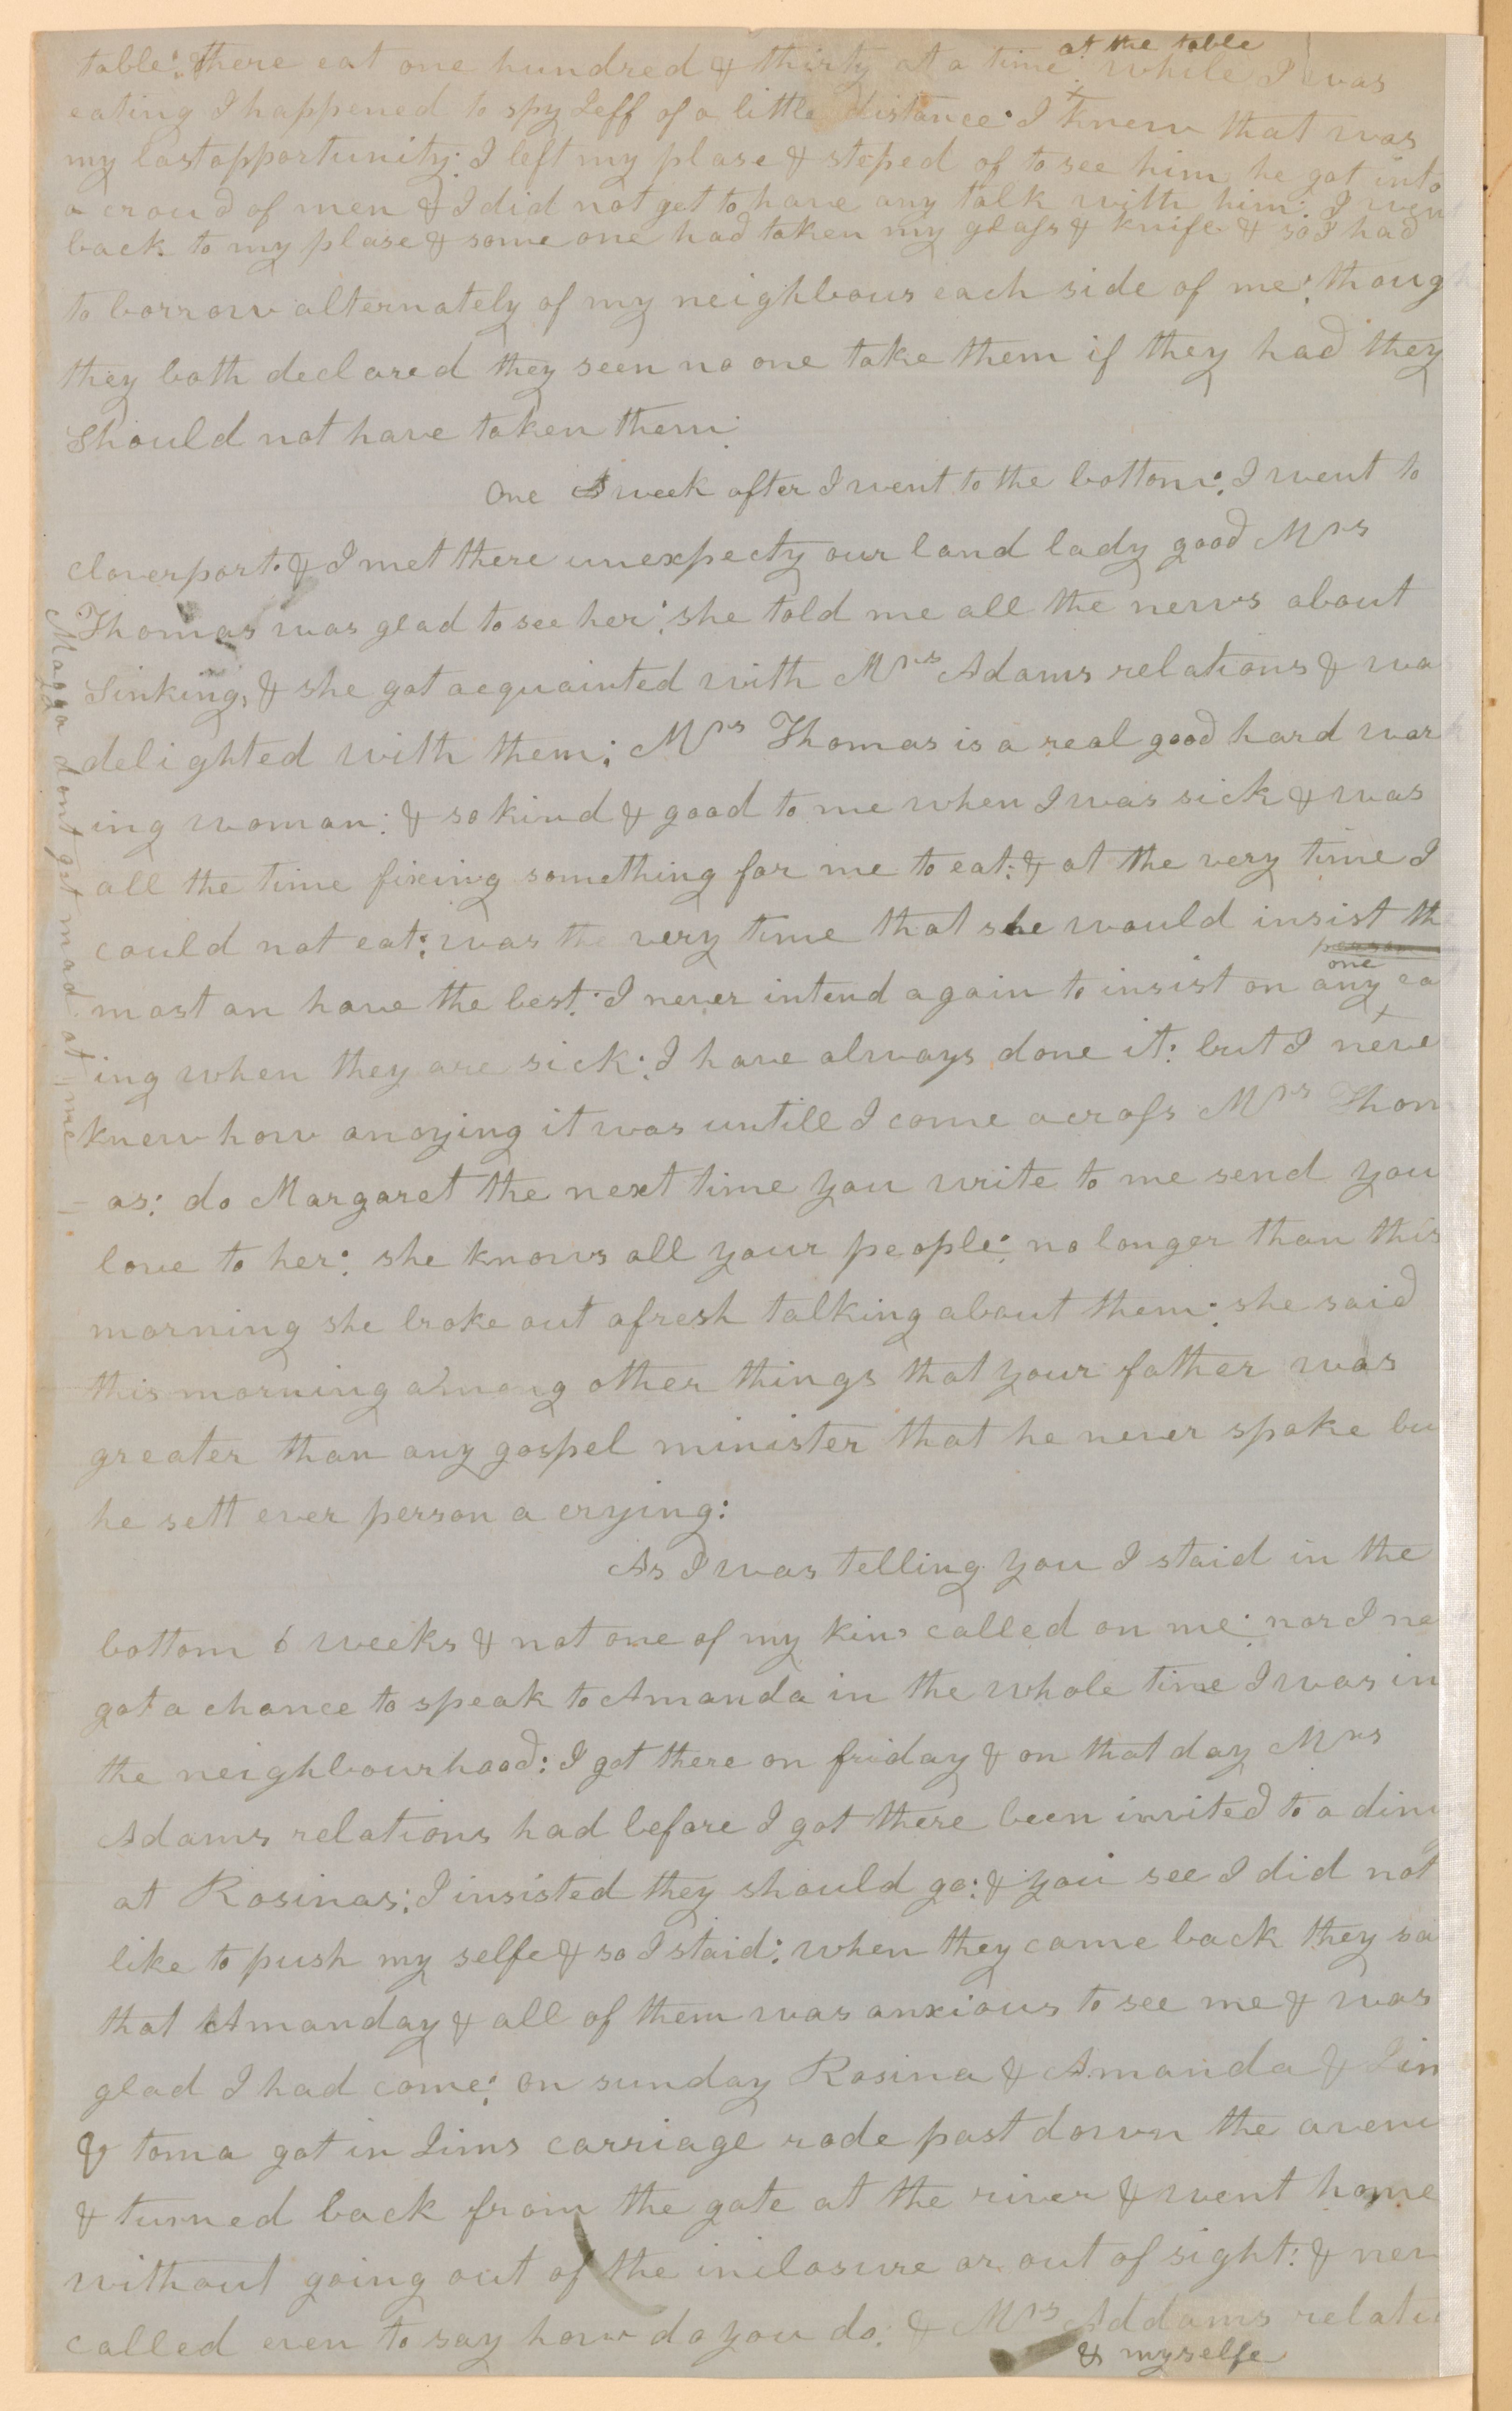 table: there eat one hundred & thirty at a time at the table while I was
eating I happened to spy Jeff of a little distance: I knew that was
my last opportunity: I left my plase & steped of to see him he got into
a croud of men & I did not get to have any talk with him: I wen
back to my plase & some one had taken my glass & knife & so I had
to borrow alternately of my neighbours each side of me: thoug
they both declared they seen no one take them if they had they
should not have taken them:
One week after I went to the bottom: I went to
cloverport: & I met there unexpecty our land lady good Mrs
Thomas was glad to see her: she told me all the news about
Sinking, & she got acquainted with Mrs Adams relations & wa
delighted with them: Mrs Thomas is a real good hard work
ing woman: & so kind & good to me when I was sick & was
all the time fixing something for me to eat: & at the very time I
could not eat: was the very time that she would insist the
most on have the best: I never intend again to insist on any one ea
ing when they are sick: I have always done it: but I neve
knew how anoying it was untill I come across Mrs Thom
as: do Margaret the next time you write to me send you
love to her: she knows all your people: no longer than this
morning she broke out afresh talking about them: she said
this morning among other things that your father was
greater than any gospel minister that he never spoke bu
he sett ever person a crying:
As I was telling you I staid in the
bottom 6 weeks & not one of my kin called on me: nor I ne
got a chance to speak to Amanda in the whole time I was in
the neighbourhood: I got there on friday & on that day Mrs
Adams relations had before I got there been invited to a din
at Rosinas: I insisted they should go: & you see I did not
like to push my selfe & so I staid: when they came back they sa
that Amanday & all of them was anxious to see me & was
glad I had come: on sunday Rosina & Amanda & Jim
& toma got in Jims carriage rode past down the avenu
& turned back from the gate at the river & went home
without going out of the inclosure or out of sight: & nev
called even to say how do you do: & Mrs Addams relati
& myselfe
dont get mad at me